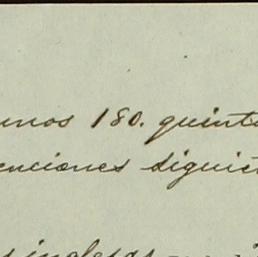 unos 180. quint
enciones siguie
s inglesas